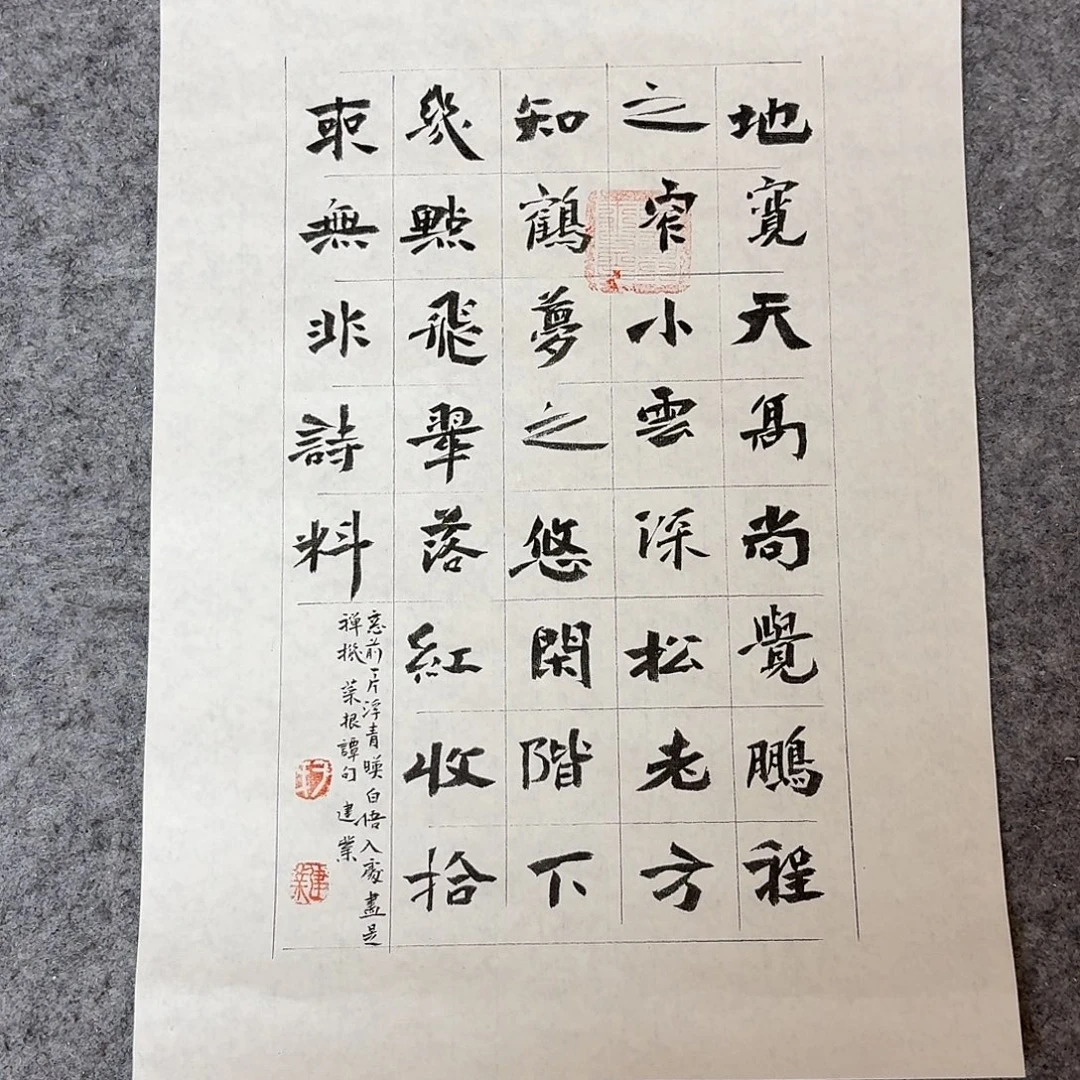 地寬天高尚覺鵬程
之窄小雲深松老方
知鶴夢之悠閑階下
幾點飛翠落紅收拾
來無非詩料
窓前一片浮青映白悟入處盡是
禪機 菜根譚句 建業